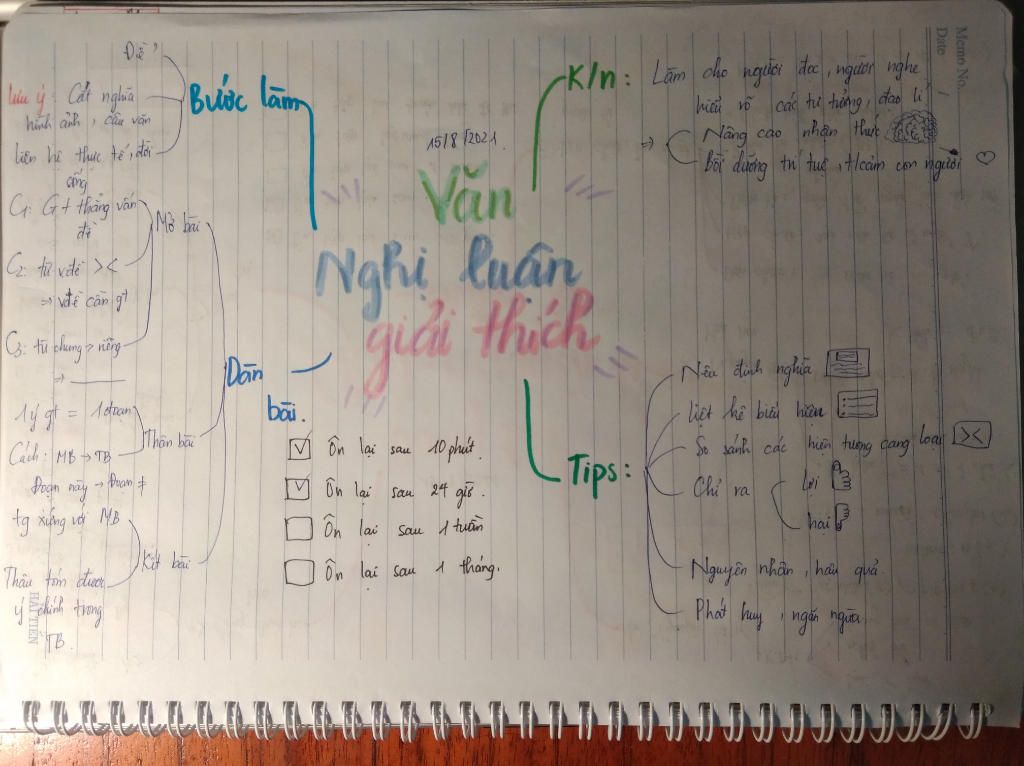 15/8/2021
Văn
Nghị luận
giải thích
K/n:
Làm cho người đọc, người nghe
hiểu rõ các tư tưởng, đạo lí
⇒ Nâng cao nhận thức
Bồi dưỡng trí tuệ, t/cảm con người
Bước làm
Đề
Lưu ý: Cắt nghĩa
hình ảnh, câu văn
liên hệ thực tế, đời
sống
Dàn
bài.
Mở bài
C1: G+ thẳng vấn
đề
C2: từ vđề ><
⇒ vđề cần gt
C3: từ chung > riêng
⇒
Thân bài
1 ý gt = 1 đoạn
Cách: MB → TB
Đoạn này → Đoạn ≠
Kết bài
tg xứng với MB
Thâu tóm được
ý chính trong
TB.
Ôn lại sau 10 phút.
Ôn lại sau 24 giờ.
Ôn lại sau 1 tuần
Ôn lại sau 1 tháng.
Tips:
Nêu định nghĩa
Liệt kê biểu hiện
So sánh các hiện tượng cùng loại ><
Chỉ ra
lợi
hại
Nguyên nhân, hậu quả
Phát huy, ngăn ngừa
Memo No.
Date /
HẢI TIẾN